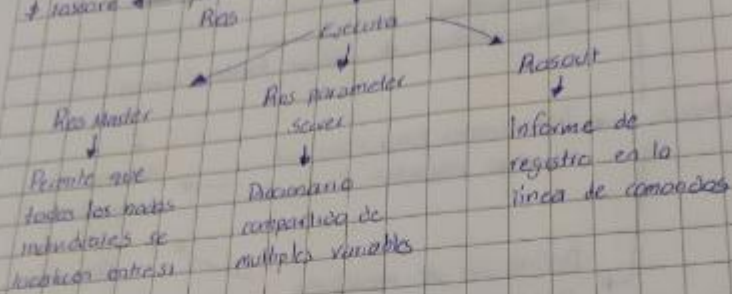 $ roscore
Ros
Ejecuta
Ros Master
Permite que
todos los nodos
individuales se
localicen entre si
Ros parameter
server
Diccionario
compartido de
multiples variables
Rosout
Informe de
registro en la
linea de comandos